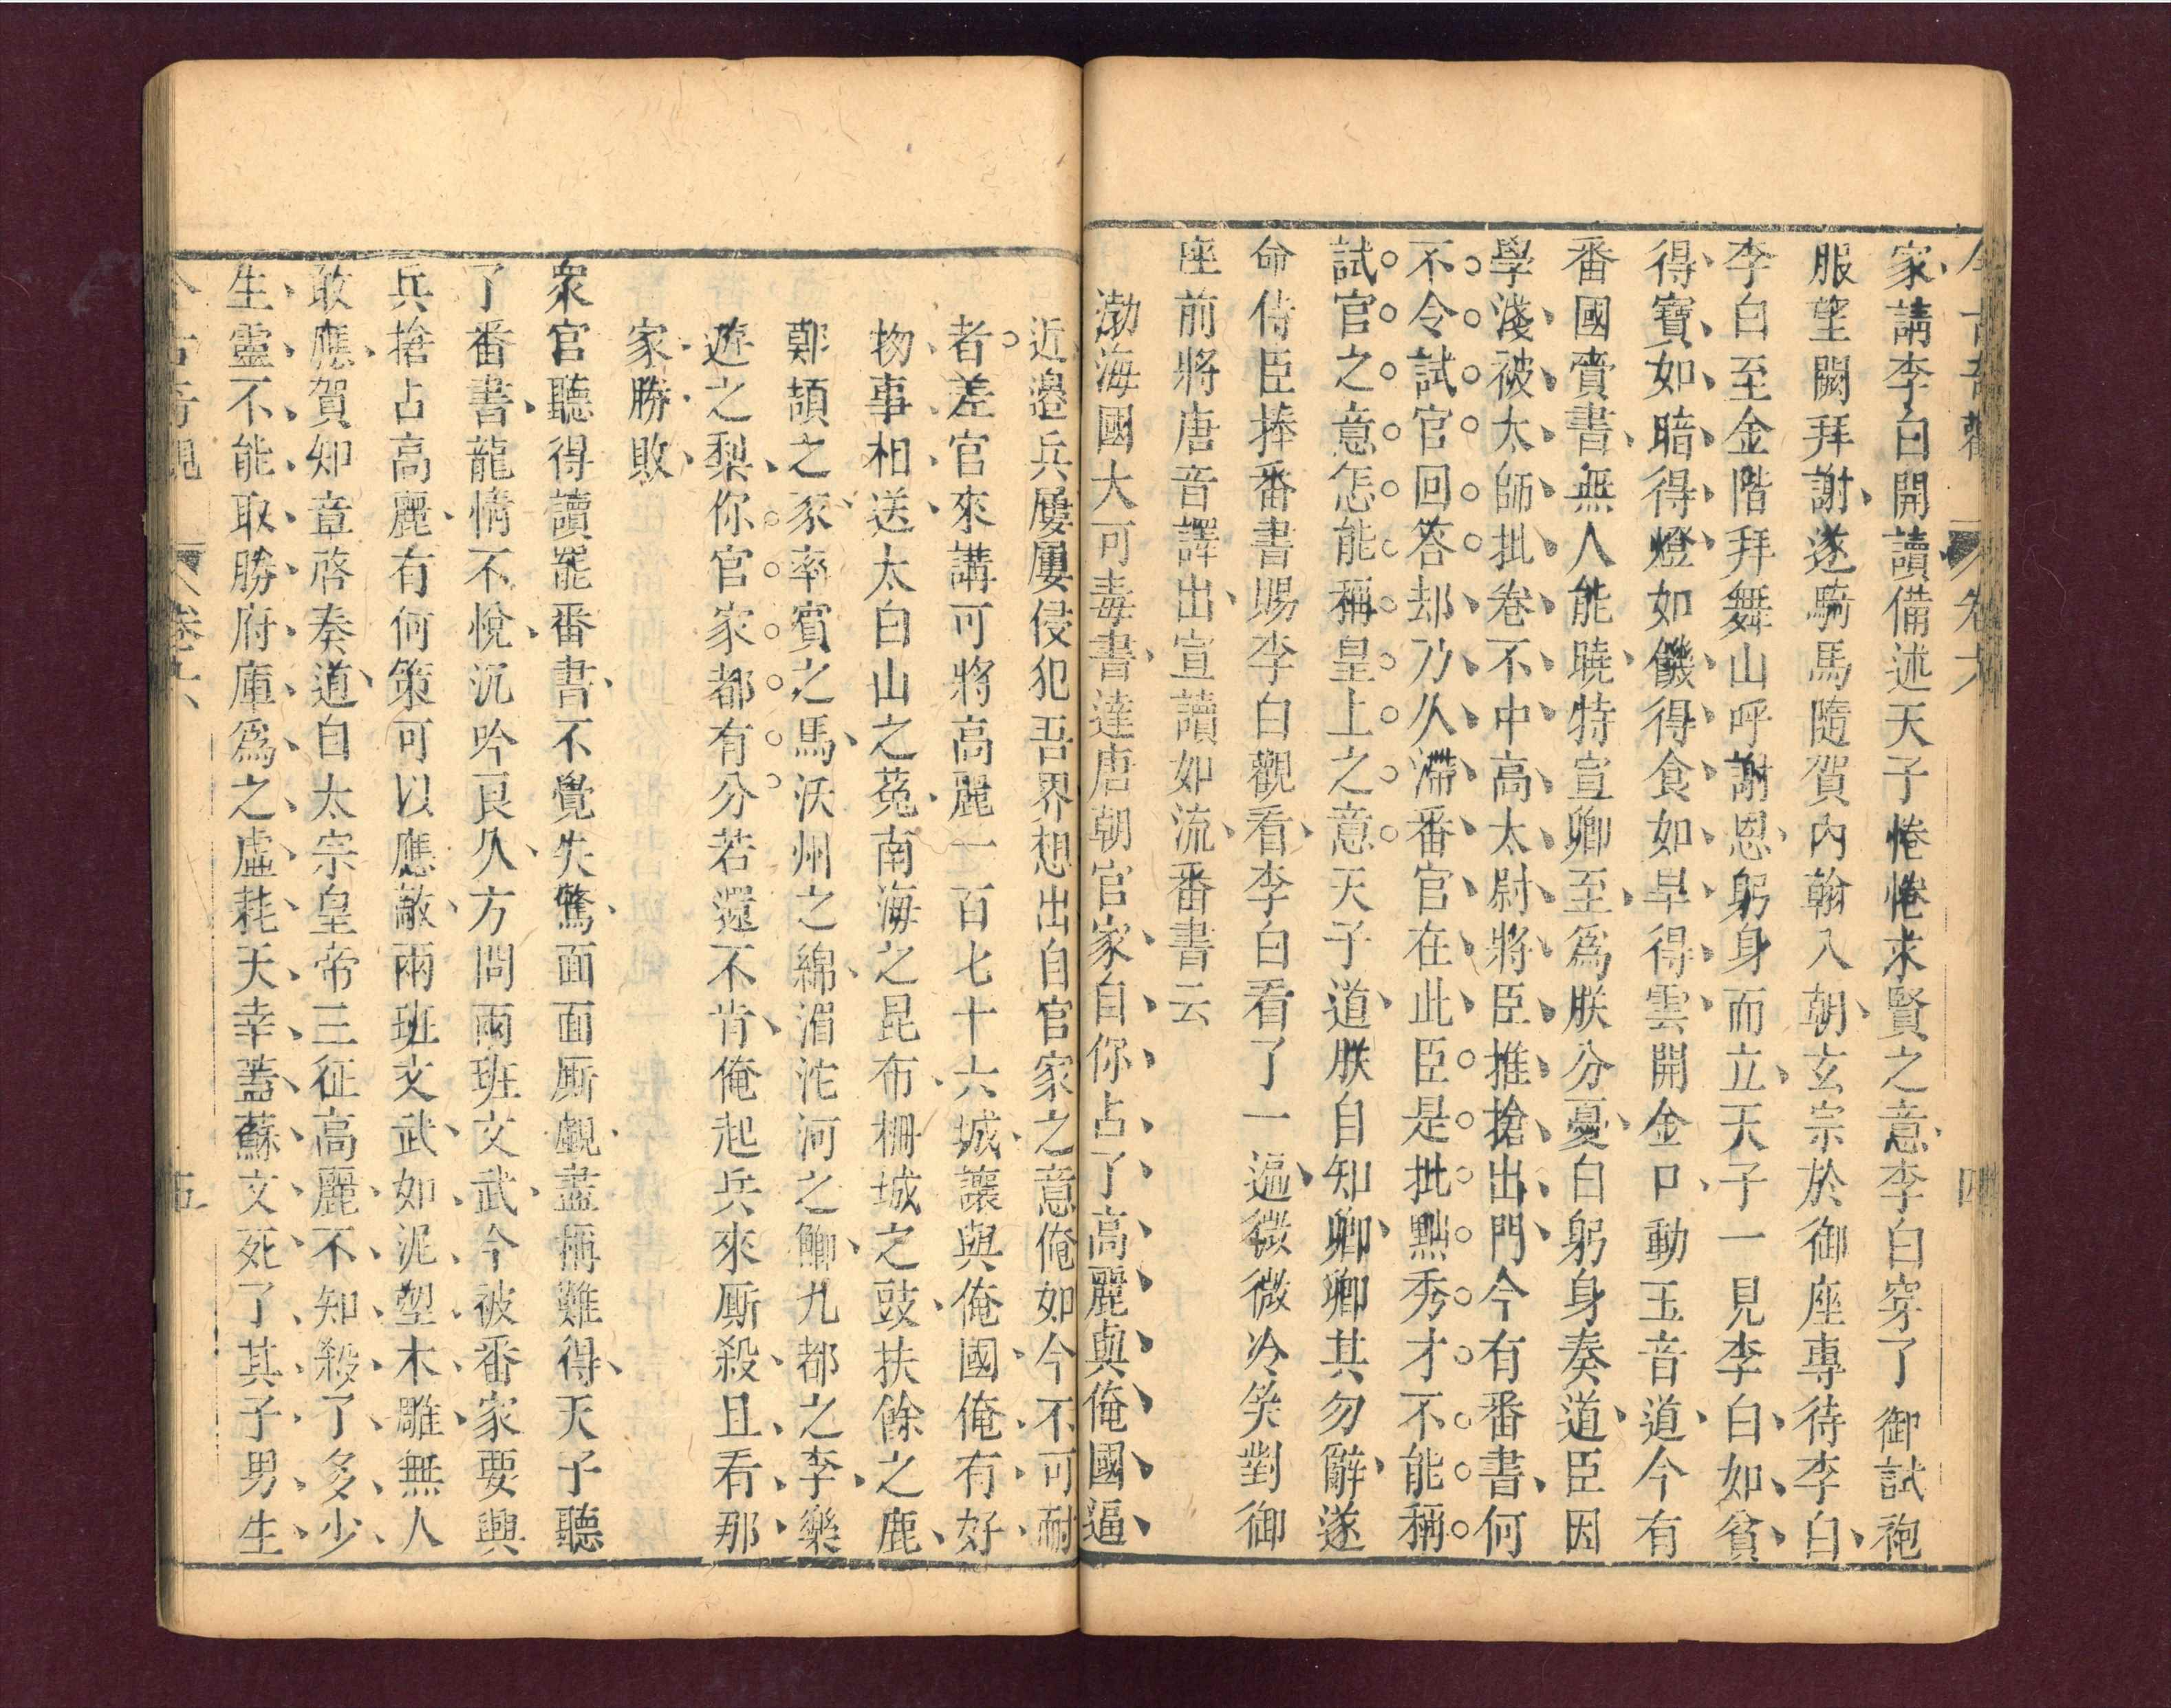 今古奇觀 卷六 四
家請李白開讀備述天子惓惓求賢之意李白穿了御試袍
服望闕拜謝遂騎馬隨賀內翰入朝玄宗於御座專待李白
李白至金階拜舞山呼謝恩躬身而立天子一見李白如貧
得寶如暗得燈如饑得食如旱得雲開金口動玉音道今有
番國賫書無人能曉特宣卿至爲朕分憂白躬身奏道臣因
學淺被太師批卷不中高太尉將臣推搶出門今有番書何
不令試官回答却乃久滯番官在此臣是批黜秀才不能稱
試官之意怎能稱皇上之意天子道朕自知卿卿其勿辭遂
命侍臣捧番書賜李白觀看李白看了一遍微微冷笑對御
座前將唐音譯出宣讀如流番書云
渤海國大可毒書達唐朝官家自你占了高麗與俺國逼
近邊兵屢屢侵犯吾界想出自官家之意俺如今不可耐
者差官來講可將高麗一百七十六城讓與俺國俺有好
物事相送太白山之菟南海之昆布柵城之豉扶餘之鹿
鄭頡之豕率賓之馬沃州之綿湄沱河之鯽九都之李樂
遊之梨你官家都有分若還不肯俺起兵來厮殺且看那
家勝敗
衆官聽得讀罷番書不覺失驚面面厮覷盡稱難得天子聽
了番書龍情不悅沉吟良久方問兩班文武今被番家要興
兵搶占高麗有何策可以應敵兩班文武如泥塑木雕無人
敢應賀知章啓奏道自太宗皇帝三征高麗不知殺了多少
生靈不能取勝府庫爲之虛耗天幸蓋蘇文死了其子男生
今古奇觀 卷六 五